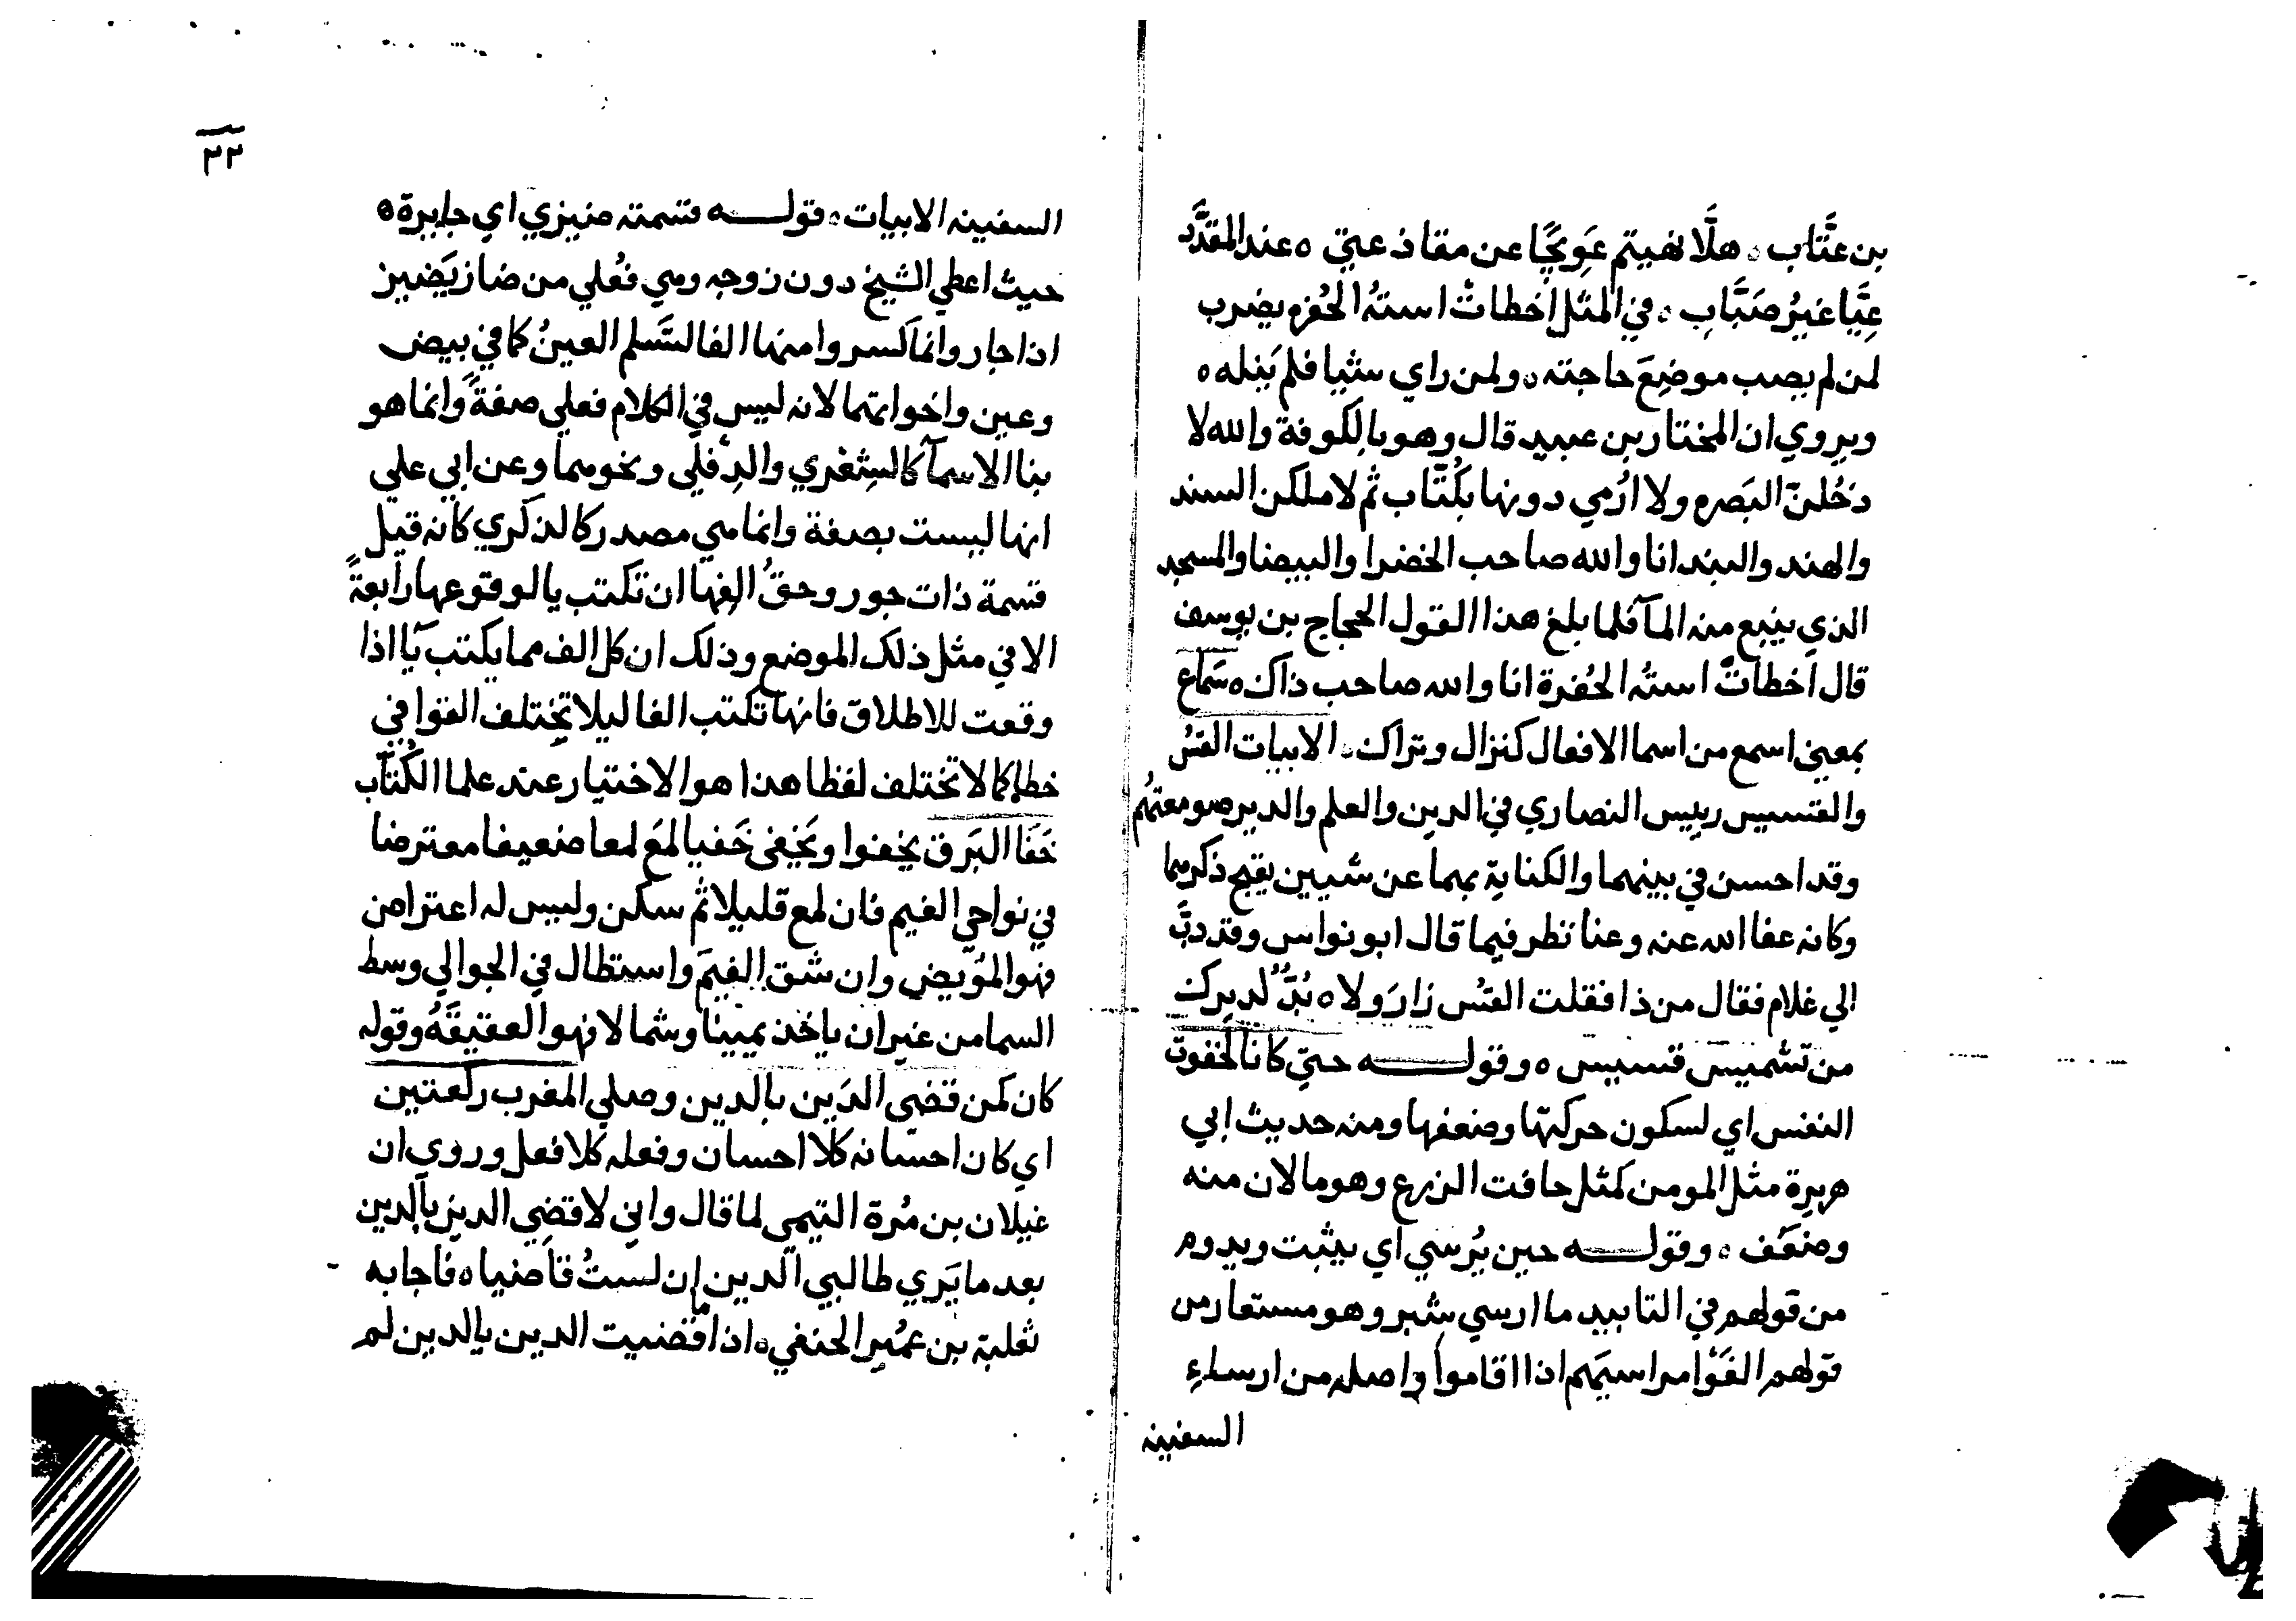 بن عتَّاب ه هلَّا نهيتم عَوِيجًا عن مقاذعتي ه عند المقدَّ
عِيًّا غيرُ صَبَّابِ ه في المثل اخطاتْ استهُ الحُفره يضرب
لمن لم يصب موضِعَ حاجته ه ولمن راي شيا فلم يَنله ه
ويروي ان المختار بن عبيد قال وهو بالكوفة والله لا
دخُلنّ البَصره ولا ارُمي دونها بكُتَّاب ثم لاملكن السند
والهند والبند انا والله صاحب الخضرا والبيضا والمسجد
الذي ينبع منه المآ فلما بلغ هذا القول الحجاج بن يوسف
قال اخطاتْ استُه الحُفرة انا والله صاحب ذاك ه سَماع
بمعني اسمع من اسما الافعال كنزال وتراك ه الابيات القسُ
والقسيس رييس النصاري في الدين والعلم والدير صومعتهُم
وقد احسن في بينهما والكناية بهما عن شيين يقبح ذكرهما
وكانه عفا الله عنه وعنا نظر فيما قال ابو نواس وقد دبَّ
الي غلام فقال من ذا فقلت القسُ زارَ ولا ه بُدَّ لديرك
من تشميس قسيس ه وقولـــه حتي كانا لخفوت
النفس اي لسكون حركتها وضعفها ومنه حديث ابي
هريرة مثل المومن كمثل خافت الزرع وهو مالان منه
وضعَف ه وقولـــه حين يُرسي اي يثبت ويدوم
من قولهم في التابيد ما ارسي شبر وهو مستعار من
قولهم القوا مراسيَهم اذا اقاموا واصله من ارساءِ
السفينه
٣٢
السفينه الابيات ه قولـــه قسمته ضيزي اي جايرة ه
حيث اعطي الشيخ دون زوجه وهي فُعلي من ضاز يَضيز
اذا جار وانما كسروا منها الفا لتَسلم العينُ كما في بيض
وعين واخواتهما لانه ليس في الكلام فعلي صفةً وانما هو
بنا الاسمآ كالشِعْري والدِفْلي ونحوهما وعن ابي علي
انها ليست بصفة وانما هي مصدر كالذكري كانه قيل
قسمة ذات جور وحقُ الفها ان تكتب يا لوقوعها رابعةً
الا في مثل ذلك الموضع وذلك ان كل الف مما يكتب يآ اذا
وقعت للاطلاق فانها تكتب الفا ليلا تختلف القوافي
خطا كما لا تختلف لفظا هذا هو الاختيار عند علما الكُتَّاب
خَفَا البَرق يخفوا ويَخفى خَفيا لمَع لمعا ضعيفا معترضا
في نواحي الغيم فان لمع قليلا ثم سكن وليس له اعتراض
فهو الموَيض وان شق الغيَم واستطال في الجو الي وسط
السما من غير ان ياخذ يمينا وشمالا فهو العقيقَهُ وقوله
كان كمن قضي الدَين بالدين وصلي المغرب ركعتين
اي كان احسانه كلا احسان وفعله كلا فعل وروي ان
غيلان بن مُرة التيمي لما قال واني لاقضي الدين بالدين
بعد ما يَري طالبي الدين ان لستُ قاضيا ه فاجابه
ثعلبة بن عمُير الحنفي ه اذا اقضيت الدين بالدين لم